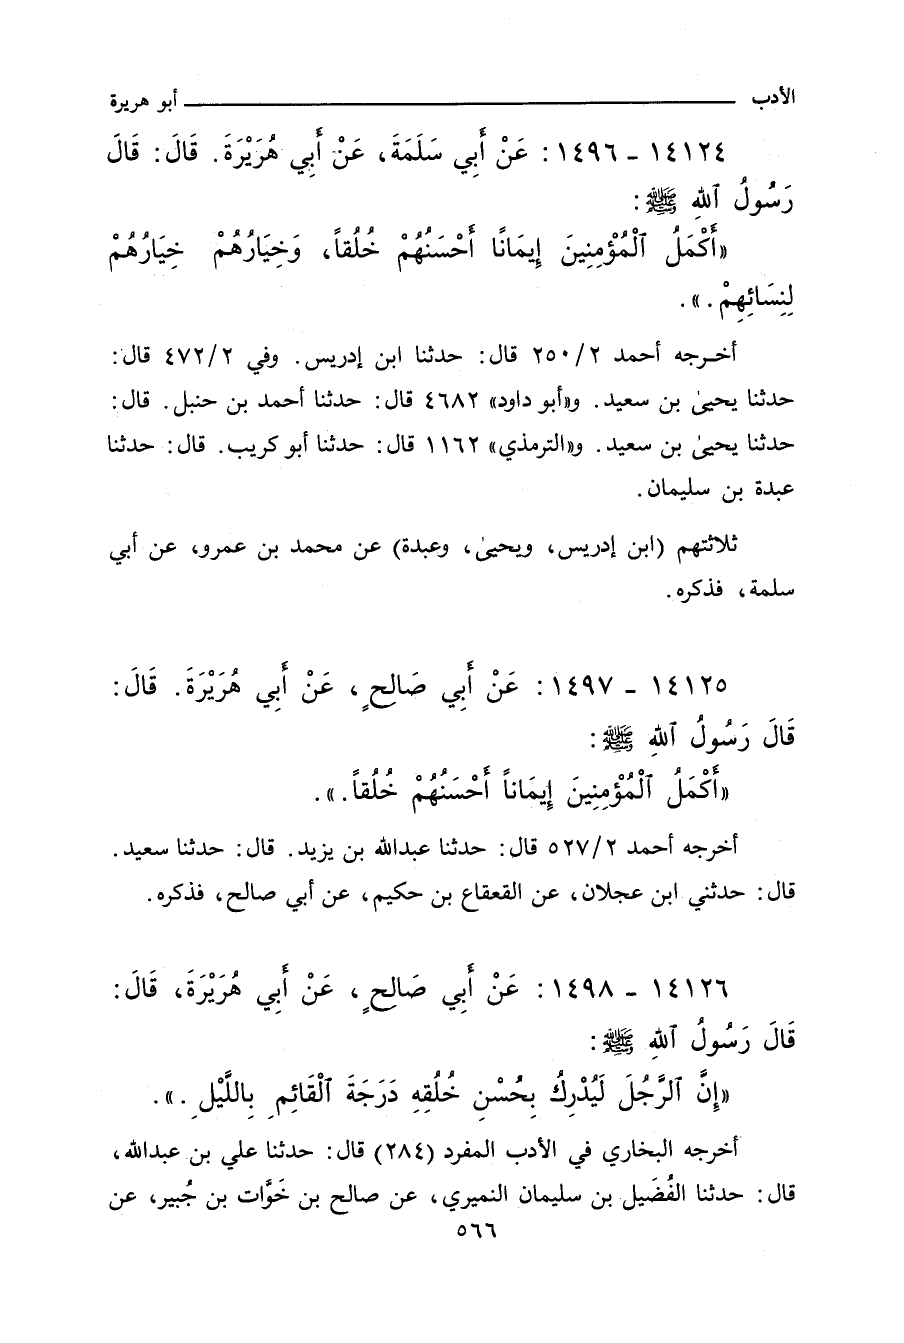 الأدب ــــــــــــــــــــ أبو هريرة
١٤١٢٤ - ١٤٩٦ : عَنْ أَبِي سَلَمَةَ، عَنْ أَبِي هُرَيْرَةَ. قَالَ: قَالَ
رَسُولُ ٱللهِ ﷺ:
«أَكْمَلُ ٱلْمُؤْمِنِينَ إِيمَانًا أَحْسَنُهُمْ خُلُقاً، وَخِيَارُهُمْ خِيَارُهُمْ
لِنِسَائِهِمْ.».
أخرجه أحمد ٢/ ٢٥٠ قال: حدثنا ابن إدريس. وفي ٢/ ٤٧٢ قال:
حدثنا يحيىٰ بن سعيد. و«أبو داود» ٤٦٨٢ قال: حدثنا أحمد بن حنبل. قال:
حدثنا يحيىٰ بن سعيد. و«الترمذي» ١١٦٢ قال: حدثنا أبو كريب. قال: حدثنا
عبدة بن سليمان.
ثلاثتهم (ابن إدريس، ويحيىٰ، وعبدة) عن محمد بن عمرو، عن أبي
سلمة، فذكره.
١٤١٢٥ - ١٤٩٧ : عَنْ أَبِي صَالِحٍ، عَنْ أَبِي هُرَيْرَةَ. قَالَ:
قَالَ رَسُولُ ٱللهِ ﷺ:
«أَكْمَلُ ٱلْمُؤْمِنِينَ إِيمَاناً أَحْسَنُهُمْ خُلُقاً.».
أخرجه أحمد ٢/ ٥٢٧ قال: حدثنا عبدالله بن يزيد. قال: حدثنا سعيد.
قال: حدثني ابن عجلان، عن القعقاع بن حكيم، عن أبي صالح، فذكره.
١٤١٢٦ - ١٤٩٨ : عَنْ أَبِي صَالِحٍ، عَنْ أَبِي هُرَيْرَةَ، قَالَ:
قَالَ رَسُولُ ٱللهِ ﷺ:
«إِنَّ ٱلرَّجُلَ لَيُدْرِكُ بِحُسْنِ خُلُقِهِ دَرَجَةَ ٱلْقَائِمِ بِاللَّيْلِ.».
أخرجه البخاري في الأدب المفرد (٢٨٤) قال: حدثنا علي بن عبدالله،
قال: حدثنا الفُضَيل بن سليمان النميري، عن صالح بن خَوَّات بن جُبير، عن
٥٦٦